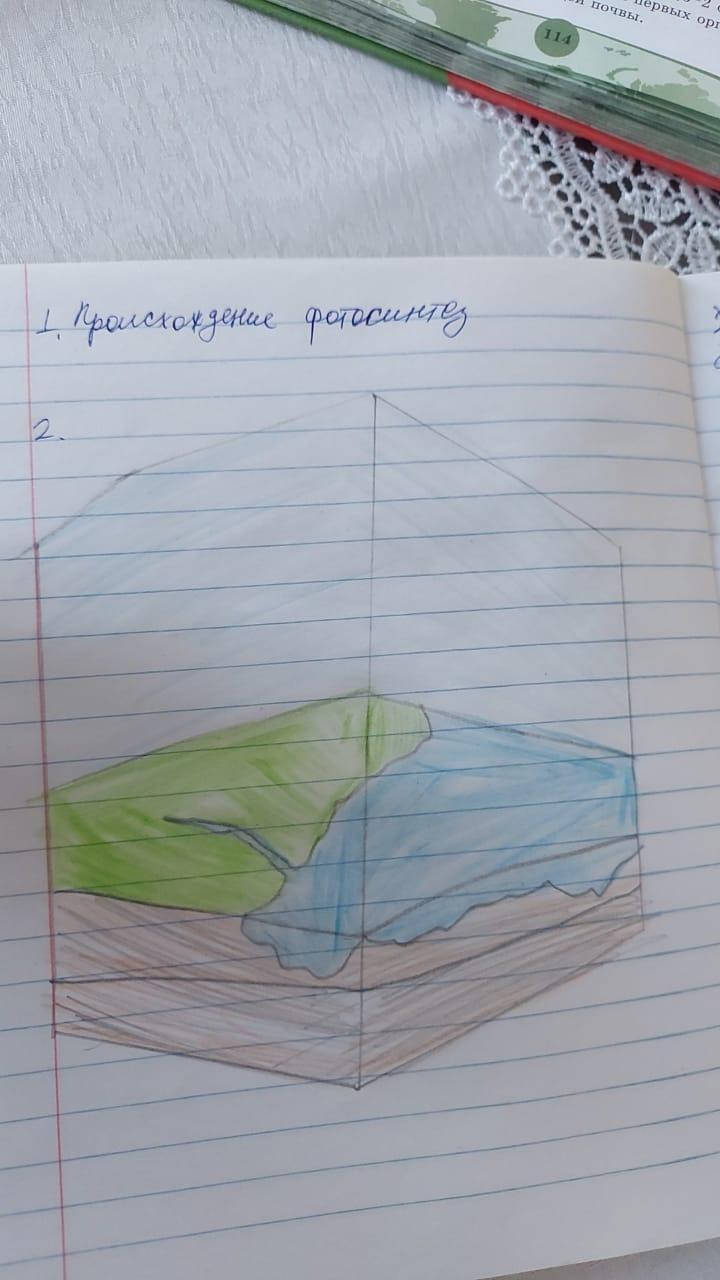 первых орг
почвы.
114
1. Происхождение фотосинтез
2.